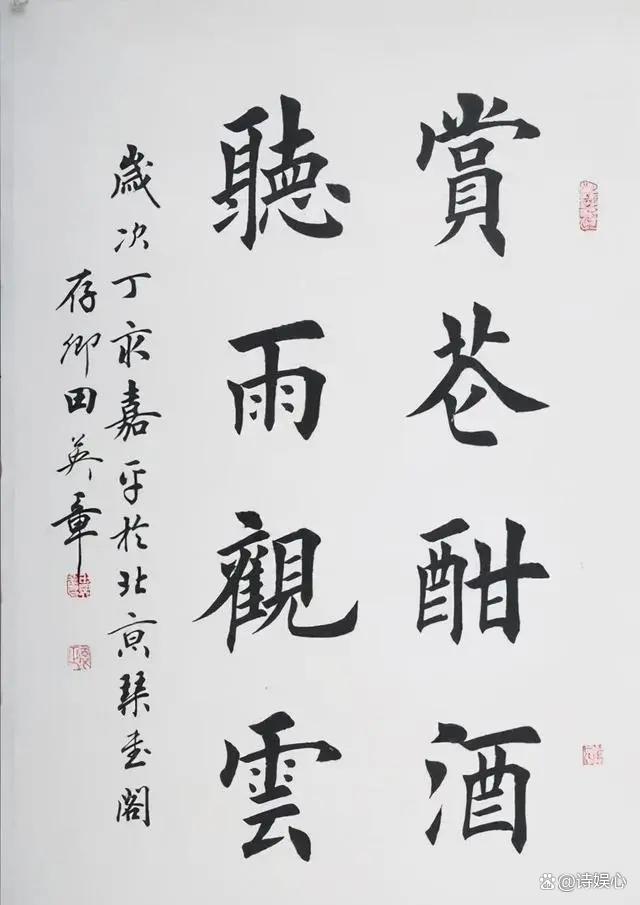 賞芲酣酒
聽雨觀雲
歲次丁亥嘉平於北京琴書閣
存卿田英章
@诗娱心